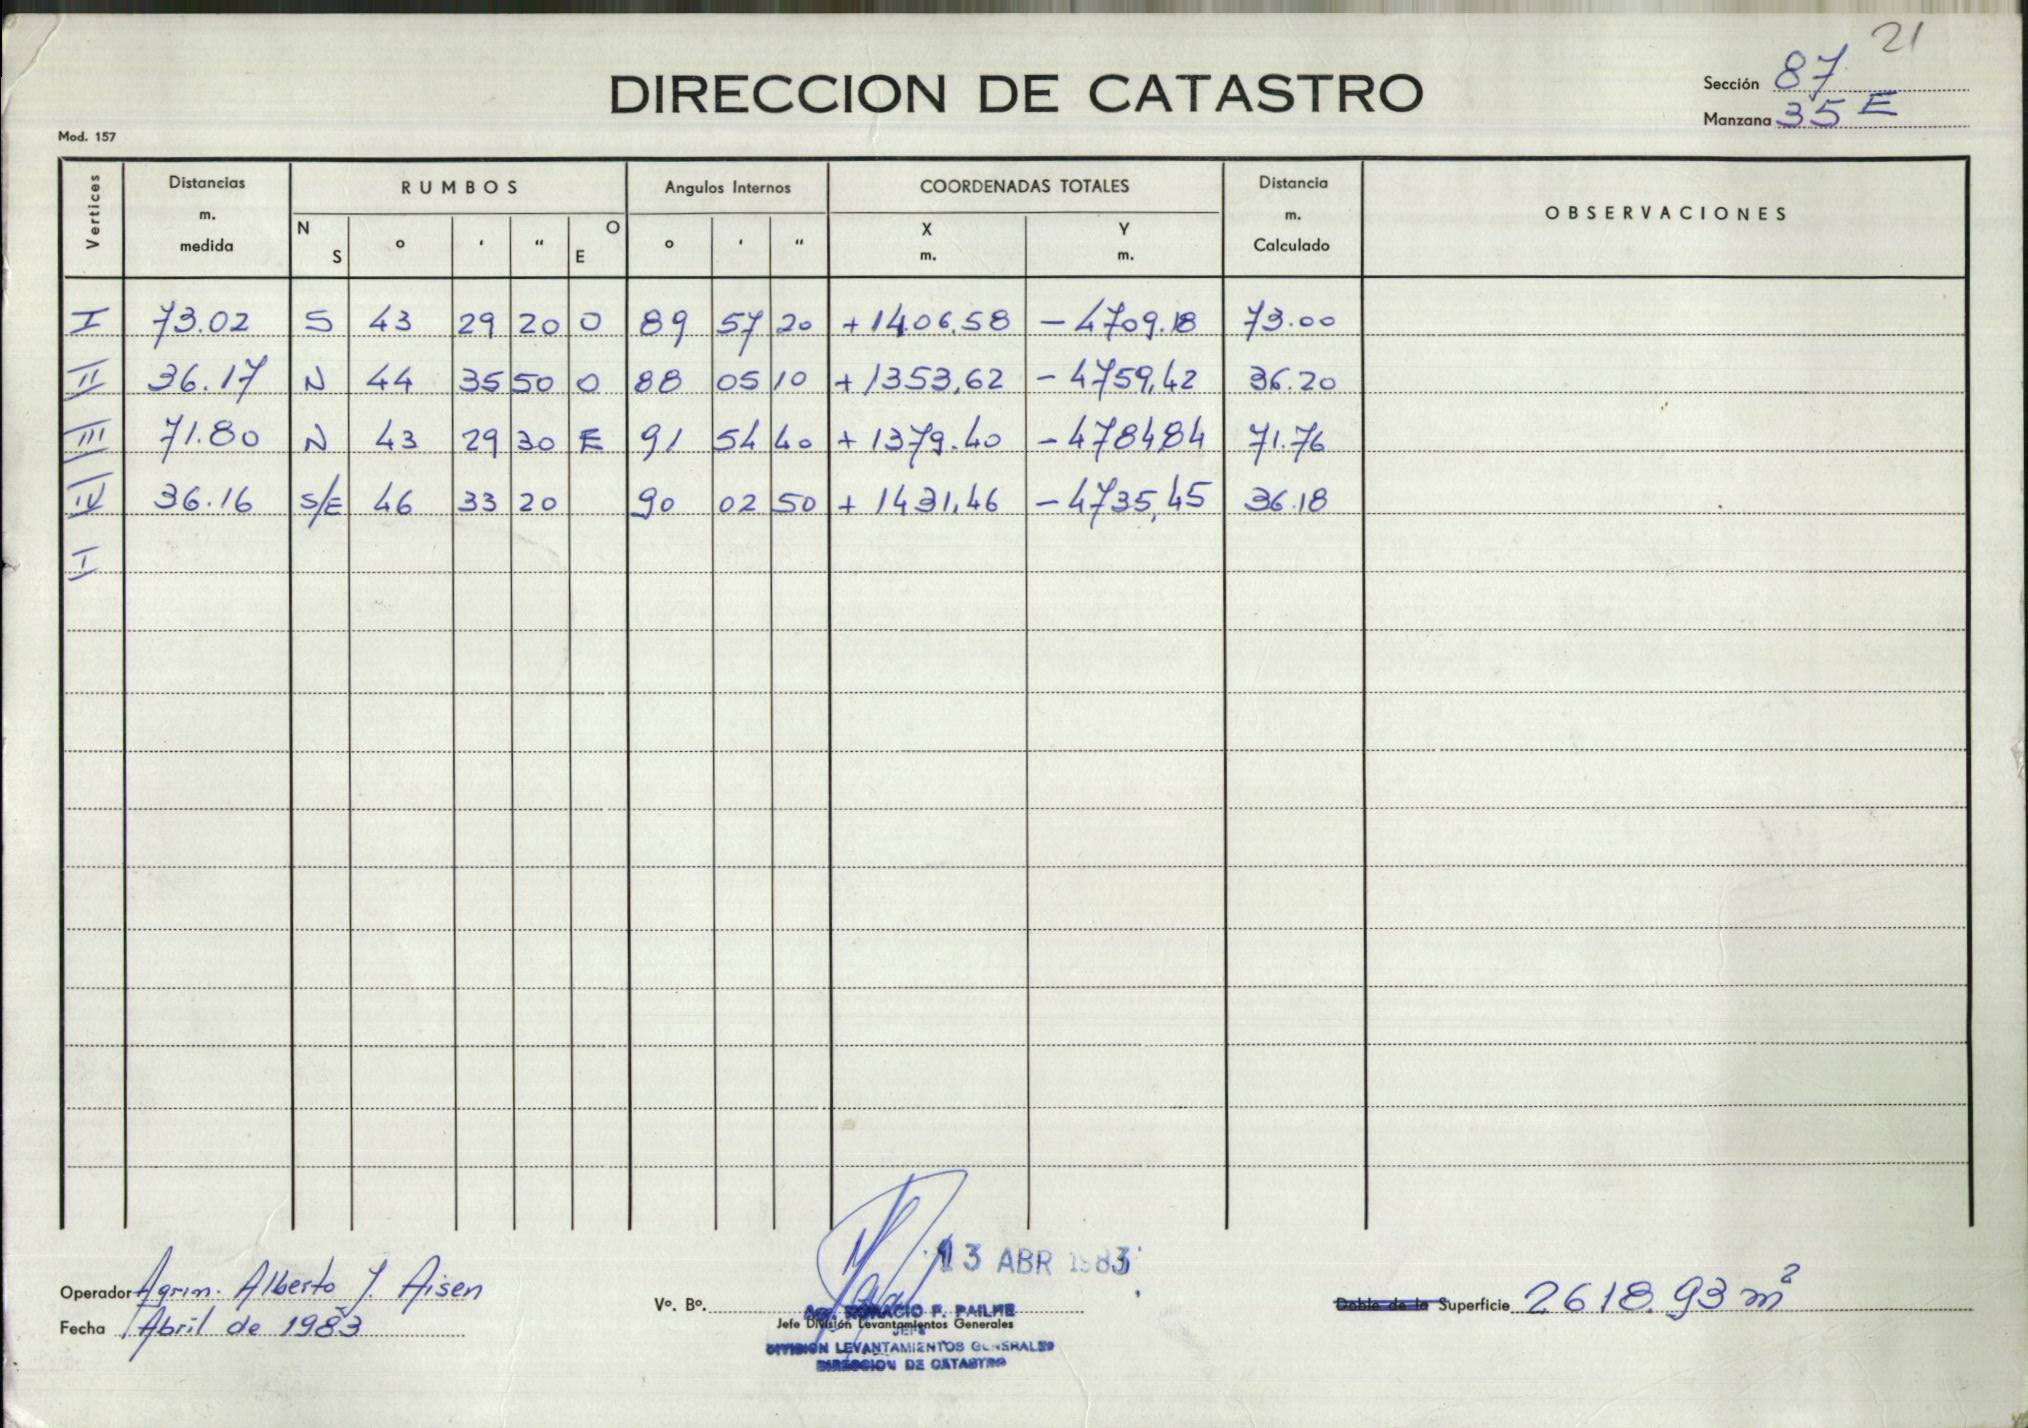 21
DIRECCION DE CATASTRO
Sección 87
Manzana 35 E
Mod. 157
Vertices Distancias m. medida RUMBOS N S ° ' " O E Angulos Internos ° ' " COORDENADAS TOTALES X m. Y m. Distancia m. Calculado OBSERVACIONES
I 73.02 S 43 29 20 O 89 57 20 +1406,58 -4709.18 73.00
II 36.17 N 44 35 50 O 88 05 10 +1353,62 -4759,42 36.20
III 71.80 N 43 29 30 E 91 54 40 +1379.40 -478484 71.76
IV 36.16 S/E 46 33 20 90 02 50 +1431,46 -4735,45 36.18
I
13 ABR 1983
Operador Agrim. Alberto J. Aisen
Vº. Bº.
HORACIO F. PAILHE
Doble de la Superficie 2618.93 m²
Fecha Abril de 1983
Jefe División Levantamientos Generales
JEFE
DIVISION LEVANTAMIENTOS GENERALES
DIRECCION DE CATASTRO